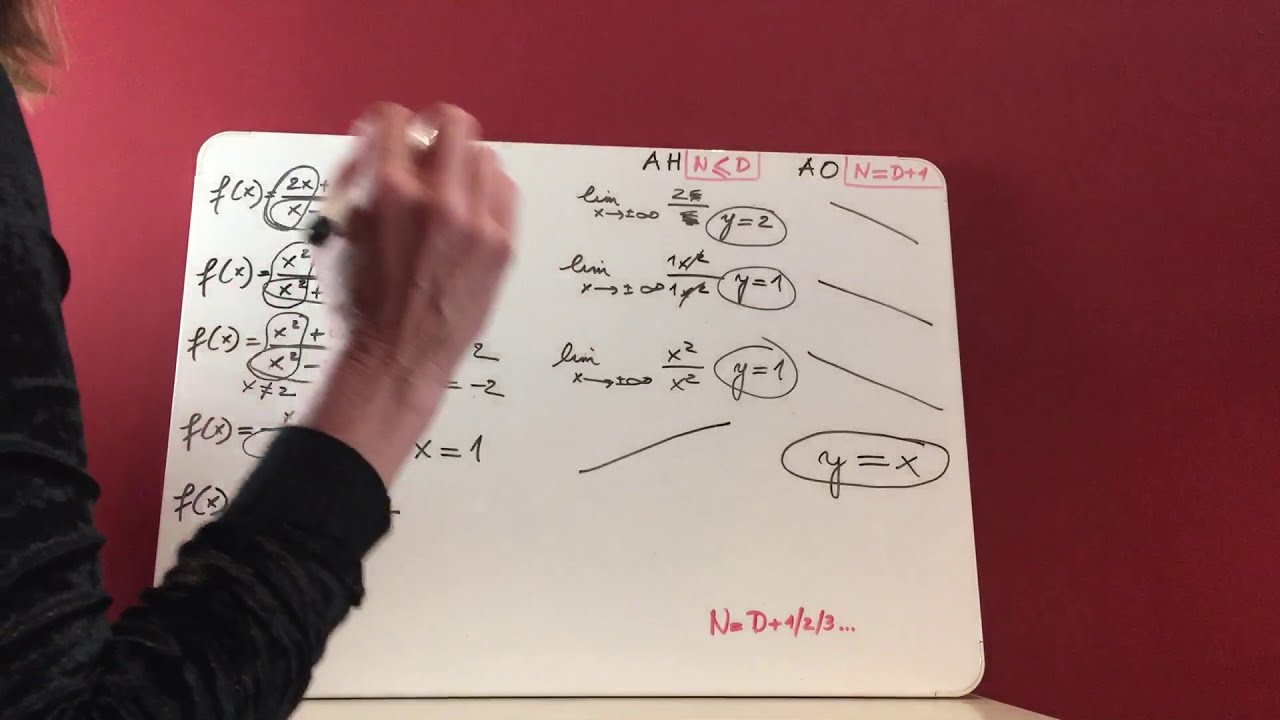 AH N ≤ D AO N = D+1
f(x) = 2x + / x - lim x→±∞ 2x / x y = 2
f(x) = x² / x² + lim x→±∞ 1x² / 1x² y = 1
f(x) = x² + / x² - 2 lim x→±∞ x² / x² y = 1
x ≠ 2 = -2
f(x) = x = 1 y = x
f(x)
N = D+1/2/3...